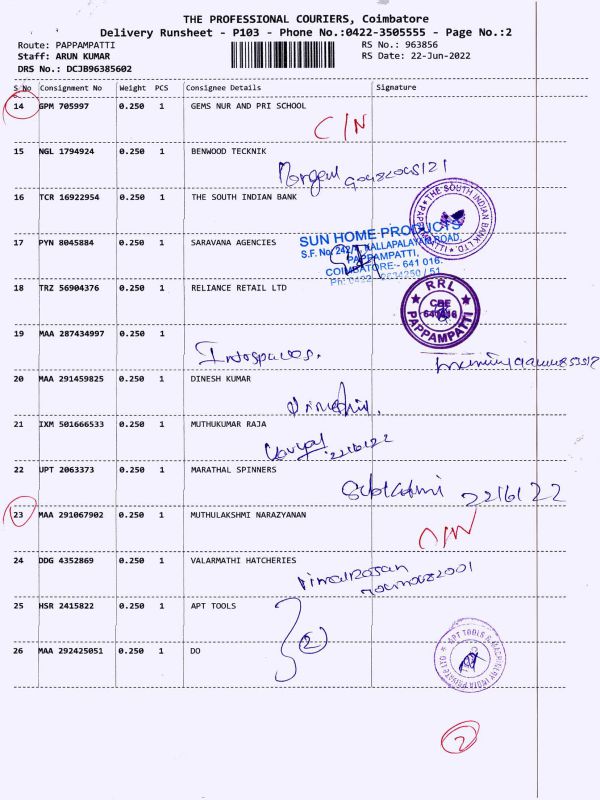 THE PROFESSIONAL COURIERS, Coimbatore
Delivery Runsheet - P103 - Phone No.:0422-3505555 - Page No.:2
Route: PAPPAMPATTI RS No.: 963856
Staff: ARUN KUMAR RS Date: 22-Jun-2022
DRS No.: DCJB96385602
S No Consignment No Weight PCS Consignee Details Signature
14 GPM 705997 0.250 1 GEMS NUR AND PRI SCHOOL
C/N
15 NGL 1794924 0.250 1 BENWOOD TECKNIK
16 TCR 16922954 0.250 1 THE SOUTH INDIAN BANK
THE SOUTH INDIAN BANK LTD. PAPPAMPATTI
17 PYN 8045884 0.250 1 SARAVANA AGENCIES
SUN HOME PRODUCTS
S.F. No. 242/1, KALLAPALAYAM ROAD,
PAPPAMPATTI,
COIMBATORE - 641 016.
Ph: 0422 - 2634250 / 51
18 TRZ 56904376 0.250 1 RELIANCE RETAIL LTD
RRL
CBE
641016
PAPPAMPATTI
19 MAA 287434997 0.250 1
20 MAA 291459825 0.250 1 DINESH KUMAR
21 IXM 501666533 0.250 1 MUTHUKUMAR RAJA
22/6/22
22 UPT 2063373 0.250 1 MARATHAL SPINNERS
22/6/22
23 MAA 291067902 0.250 1 MUTHULAKSHMI NARAZYANAN
C/N
24 DDG 4352869 0.250 1 VALARMATHI HATCHERIES
25 HSR 2415822 0.250 1 APT TOOLS
2
26 MAA 292425051 0.250 1 DO
APT TOOLS & MACHINERY INDIA PRIVATE LIMITED
2